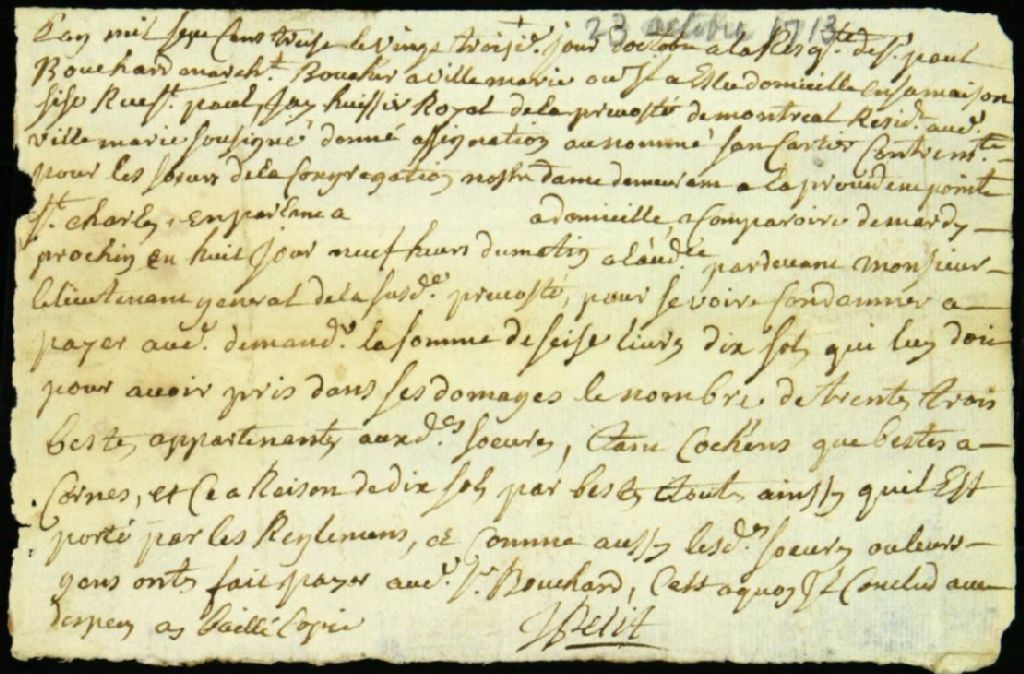 23 octobre 1713
Lan mil sept Cens treise le vingt troisie. jour doctobre a la Reqte. de Sr. paul
Bouchard march. Boucher a ville marie ou Il a Esleu domicille en sa maison
sise Rue St. paul, Jay huissier Royal de la prevosté de montreal Resid. aud.
ville marie sousigné donné assignation au nommé
pour les soeurs de la Congregation nostre dame demeurant a la providence pointe
St. charles, en parlant a adomicille, a Comparoire de mardy
prochin en huit jour neuf heurs du matin a laudce. pardevant monsieur
le lieutenant general de la susde. prevosté, pour se voire Condemner a
payer aud. demandr. la somme de seise livres dix sols qui luy doit
pour avoir pris dans ses domages le nombre de trentes trois
bestes appartenantes auxdes. soeures, tant Cochens que bestes a
Cornes, et Ce a Raison de dix sols par bestes toutes ainssy quil Est
porté par les Reglemens, et Comme aussy lesdes. soeures ou leurs
gens ontes fait payer aud. Sr. Bouchard, Cest a quoy Il Conclud avec
despens as baillé Copie Petit